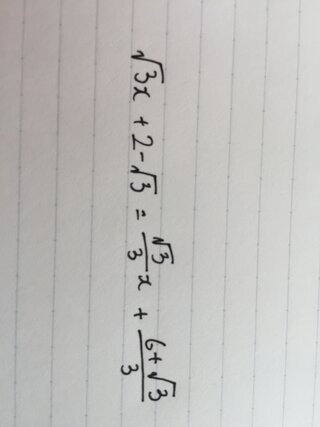 √3x + 2 - √3 = √3/3 x + (6+√3)/3